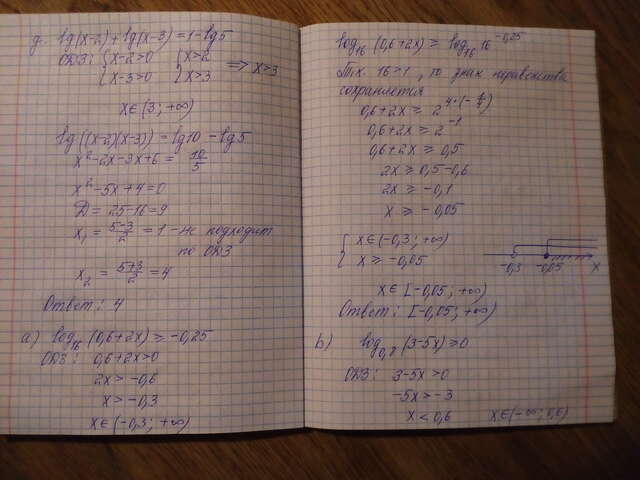 д. lg(x-2)+lg(x-3)=1-lg5
ОДЗ: {x-2>0 {x>2
{x-3>0 {x>3 => x>3
x∈(3; +∞)
lg((x-2)(x-3))=lg10-lg5
x²-2x-3x+6=10/5
x²-5x+4=0
D=25-16=9
x₁=(5-3)/2=1 - не подходит
по ОДЗ
x₂=(5+3)/2=4
Ответ: 4
а) log₁₆(0,6+2x)≥-0,25
ОДЗ: 0,6+2x>0
2x>-0,6
x>-0,3
x∈(-0,3; +∞)
log₁₆(0,6+2x)≥log₁₆16^(-0,25)
Т.к. 16>1, то знак неравенства
сохраняется
0,6+2x≥2^(4·(-1/4))
0,6+2x≥2⁻¹
0,6+2x≥0,5
2x≥0,5-0,6
2x≥-0,1
x≥-0,05
{x∈(-0,3; +∞)
{x≥-0,05
-0,3 -0,05 x
x∈[-0,05; +∞)
Ответ: [-0,05; +∞)
b) (3-5x)≥0
ОДЗ: 3-5x>0
-5x>-3
x<0,6 x∈(-∞; 0,6)